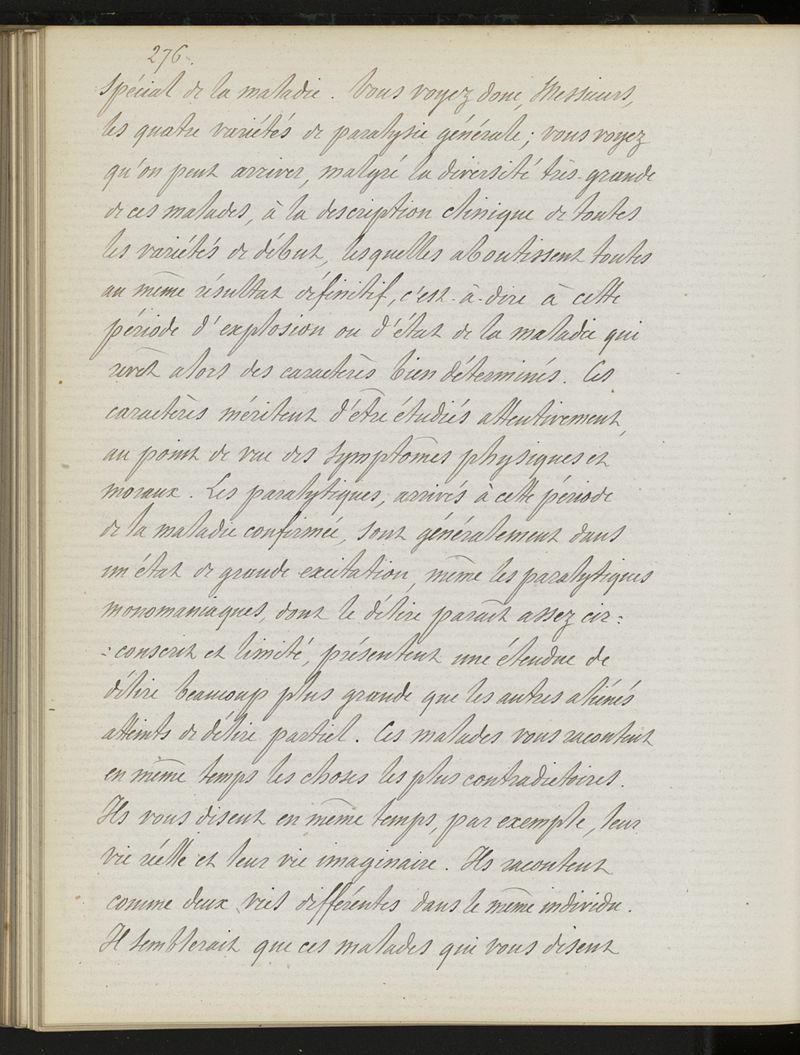 276.
spécial de la maladie. Vous voyez donc, Messieurs,
les quatre variétés de paralysie générale; vous voyez
qu'on peut arriver, malgré la diversité très-grande
de ces malades, à la description clinique de toutes
les variétés de début, lesquelles aboutissent toutes
au même résultat définitif, c'est-à-dire à cette
période d'explosion ou d'état de la maladie qui
revêt alors des caractères bien déterminés. Ces
caractères méritent d'être étudiés attentivement,
au point de vue des symptômes physiques et
moraux. Les paralytiques, arrivés à cette période
de la maladie confirmée, sont généralement dans
un état de grande excitation, même les paralytiques
monomaniaques, dont le délire paraît assez cir=
=conscrit et limité, présentent une étendue de
délire beaucoup plus grande que les autres aliénés
atteints de délire partiel. Ces malades vous racontent
en même temps les choses les plus contradictoires.
Ils vous disent en même temps, par exemple, leur
vie réelle et leur vie imaginaire. Ils racontent
comme deux vies différentes dans le même individu.
Il semblerait que ces malades qui vous disent